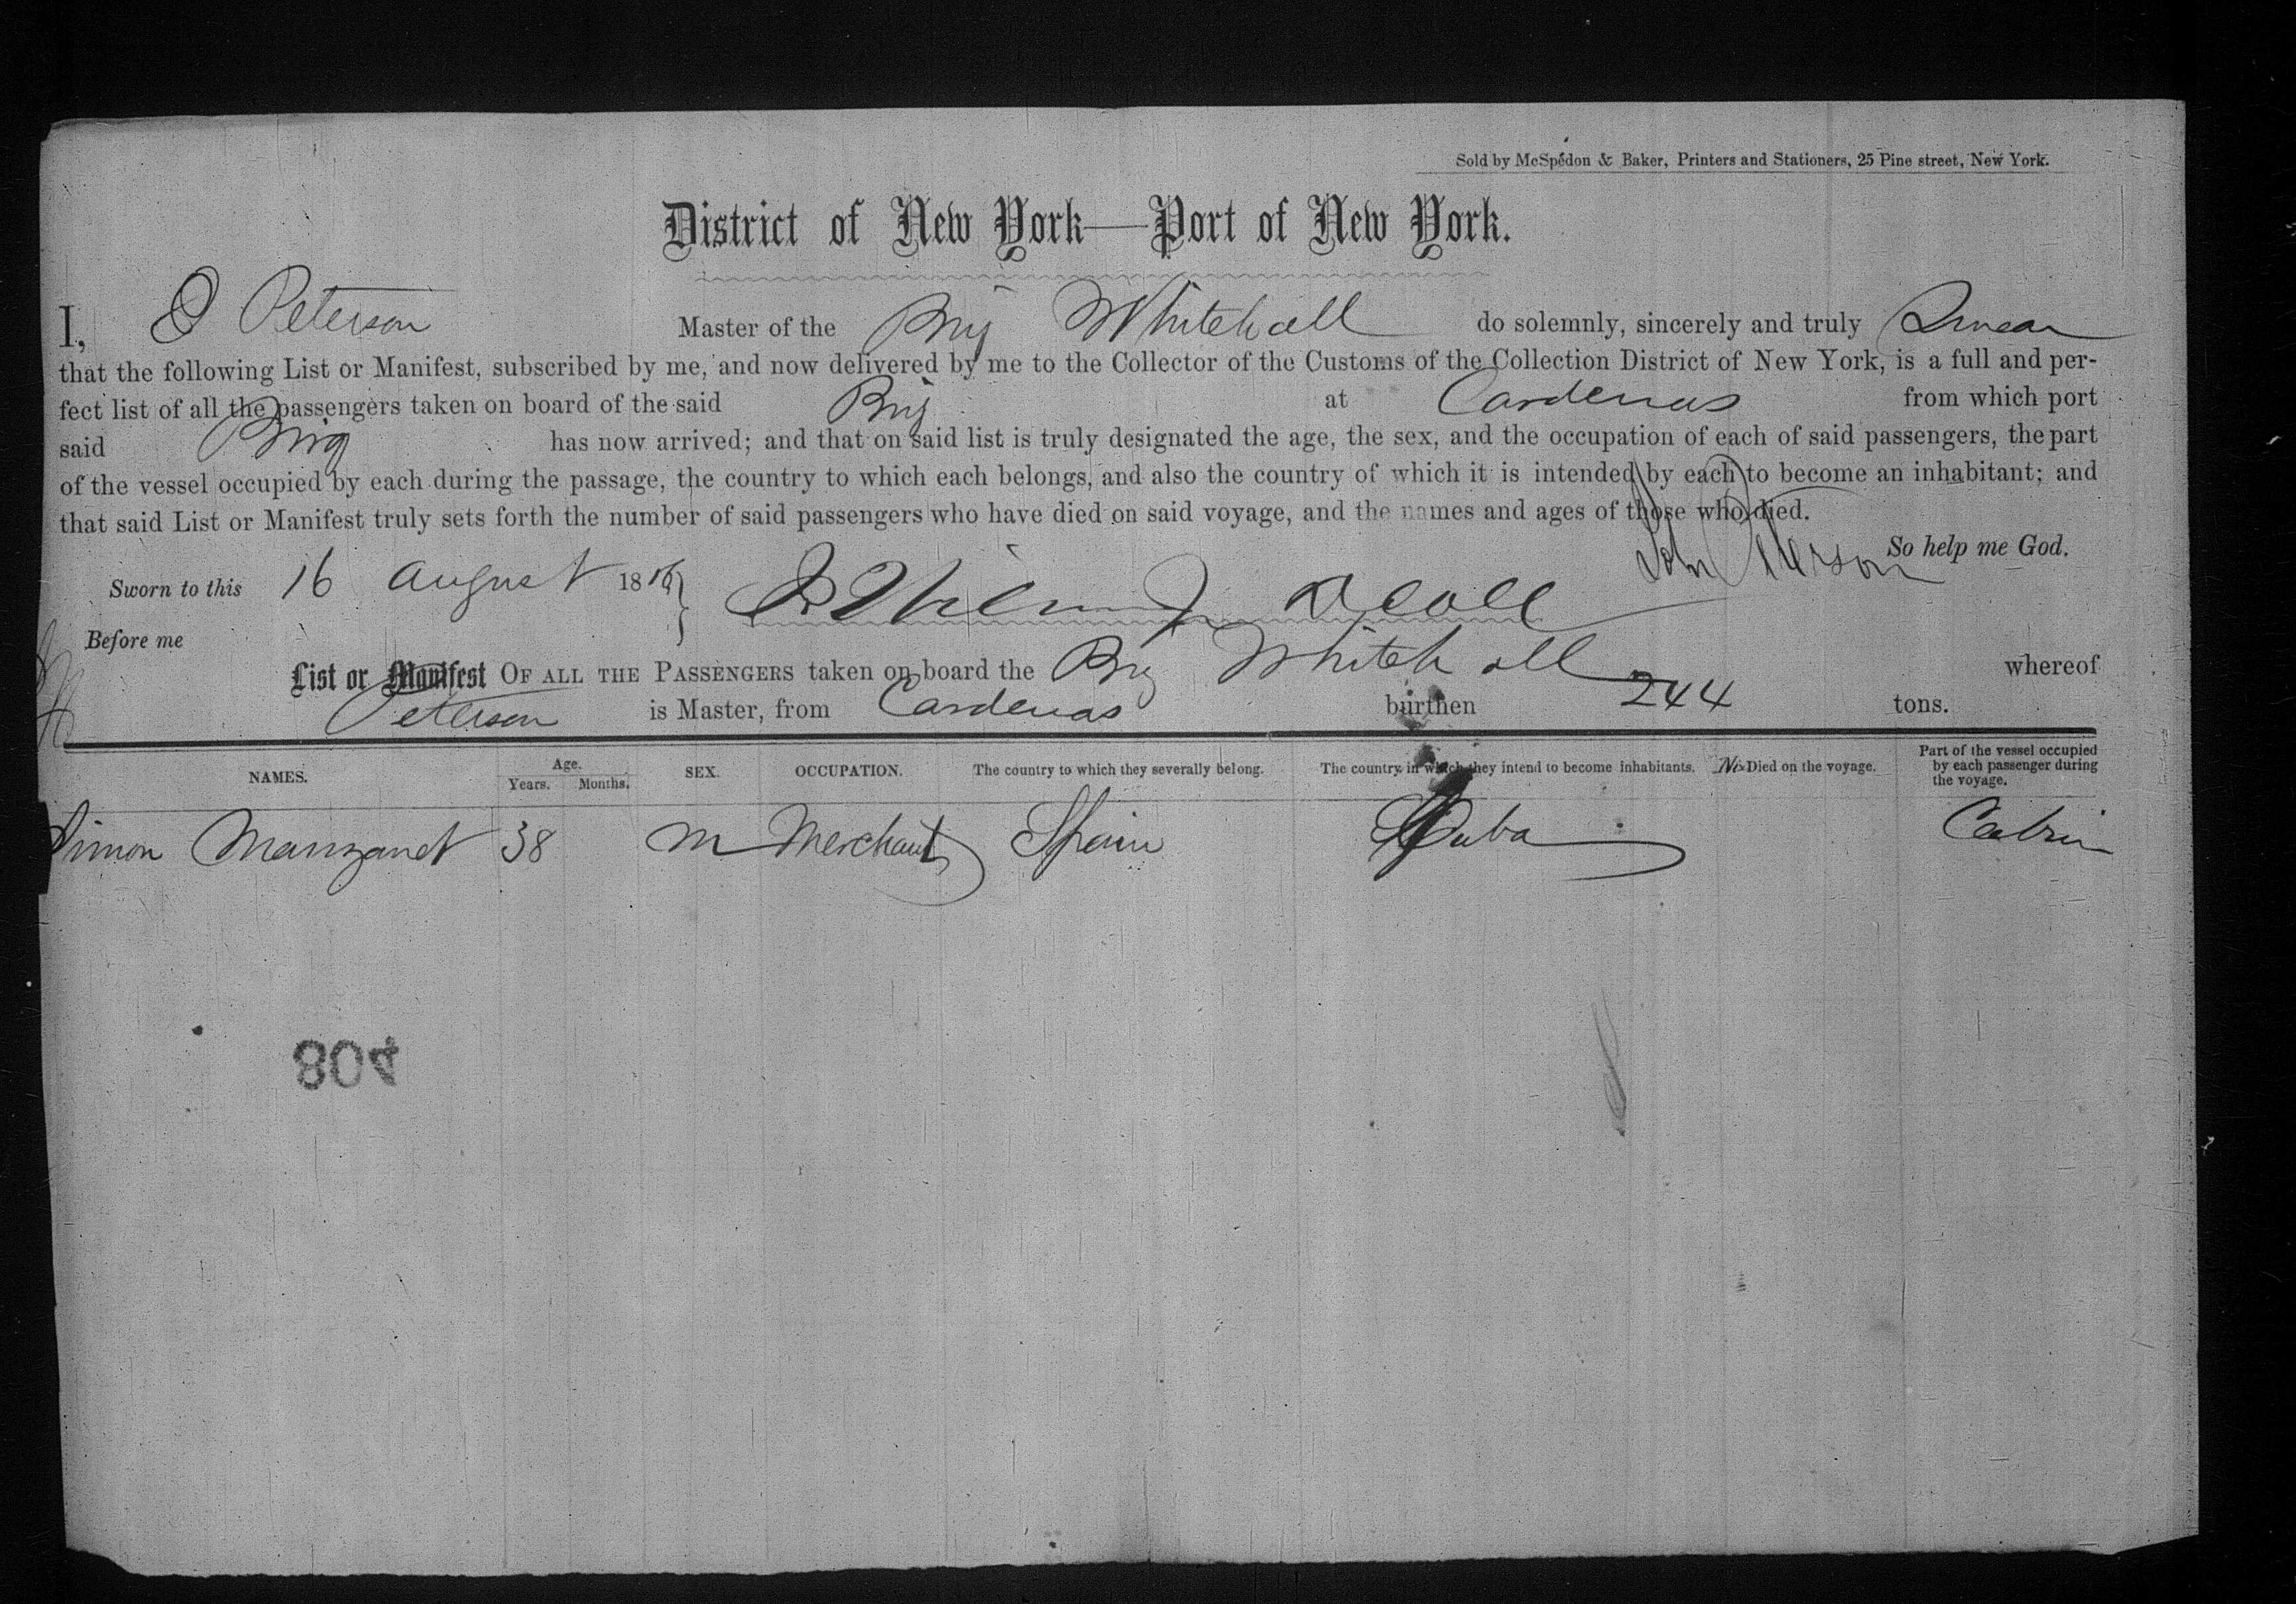 Sold by McSpedon & Baker, Printers and Stationers, 25 Pine street, New York.
District of New York—Port of New York.
I, Peterson Master of the Brig Whitehall do solemnly, sincerely and truly Swear
that the following List or Manifest, subscribed by me, and now delivered by me to the Collector of the Customs of the Collection District of New York, is a full and per-
fect list of all the passengers taken on board of the said Brig at Cardenas from which port
said Brig has now arrived; and that on said list is truly designated the age, the sex, and the occupation of each of said passengers, the part
of the vessel occupied by each during the passage, the country to which each belongs, and also the country of which it is intended by each to become an inhabitant; and
that said List or Manifest truly sets forth the number of said passengers who have died on said voyage, and the names and ages of those who died.
John Peterson So help me God.
Sworn to this 16 August 18
Before me
List or Manifest OF ALL THE PASSENGERS taken on board the Brig Whitehall whereof
Peterson is Master, from Cardenas burthen 244 tons.
NAMES. Age. Years. Months. SEX. OCCUPATION. The country to which they severally belong. The country in which they intend to become inhabitants. Died on the voyage. Part of the vessel occupied by each passenger during the voyage.
Simon Manzanet 38 M Merchant Spain Cuba Cabin
804